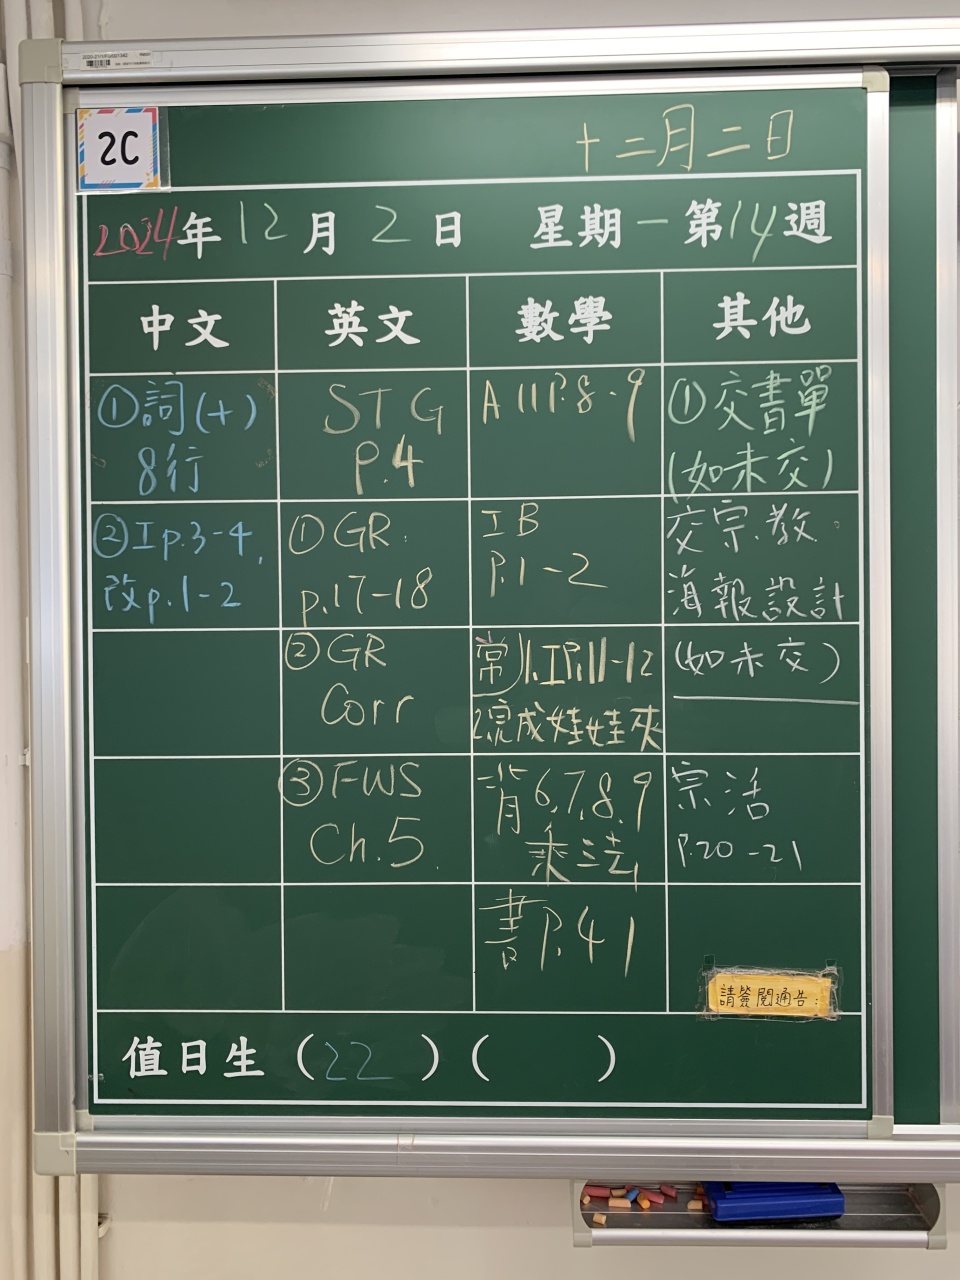 2C
十二月二日
2024年12月2日 星期一第14週
中文 英文 數學 其他
①詞(十)
8行
STG
P.4
A11P.8-9
①交書單
(如未交)
②工p.3-4,
改p.1-2
①GR
p.17-18
工B
P.1-2
交宗教
海報設計
②GR
Corr
常)1.工P.11-12
2.完成娃娃夾
(如未交)
③FWS
Ch.5
背6,7,8,9
乘法
宗活
P.20-21
書P.41
請簽閱通告:
值日生(22)( )